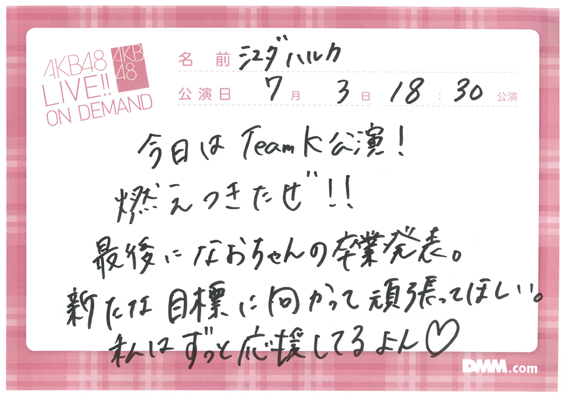 AKB48
LIVE!!
ON DEMAND
AKB
48
名前 江ダハルカ
公演日 7月 3日 18:30 公演
今日は Team K公演!
燃えつきたぜ!!
最後になおちゃんの卒業発表。
新たな目標に向かって頑張ってほしい。
私はずっと応援してるよん♡
DMM.com